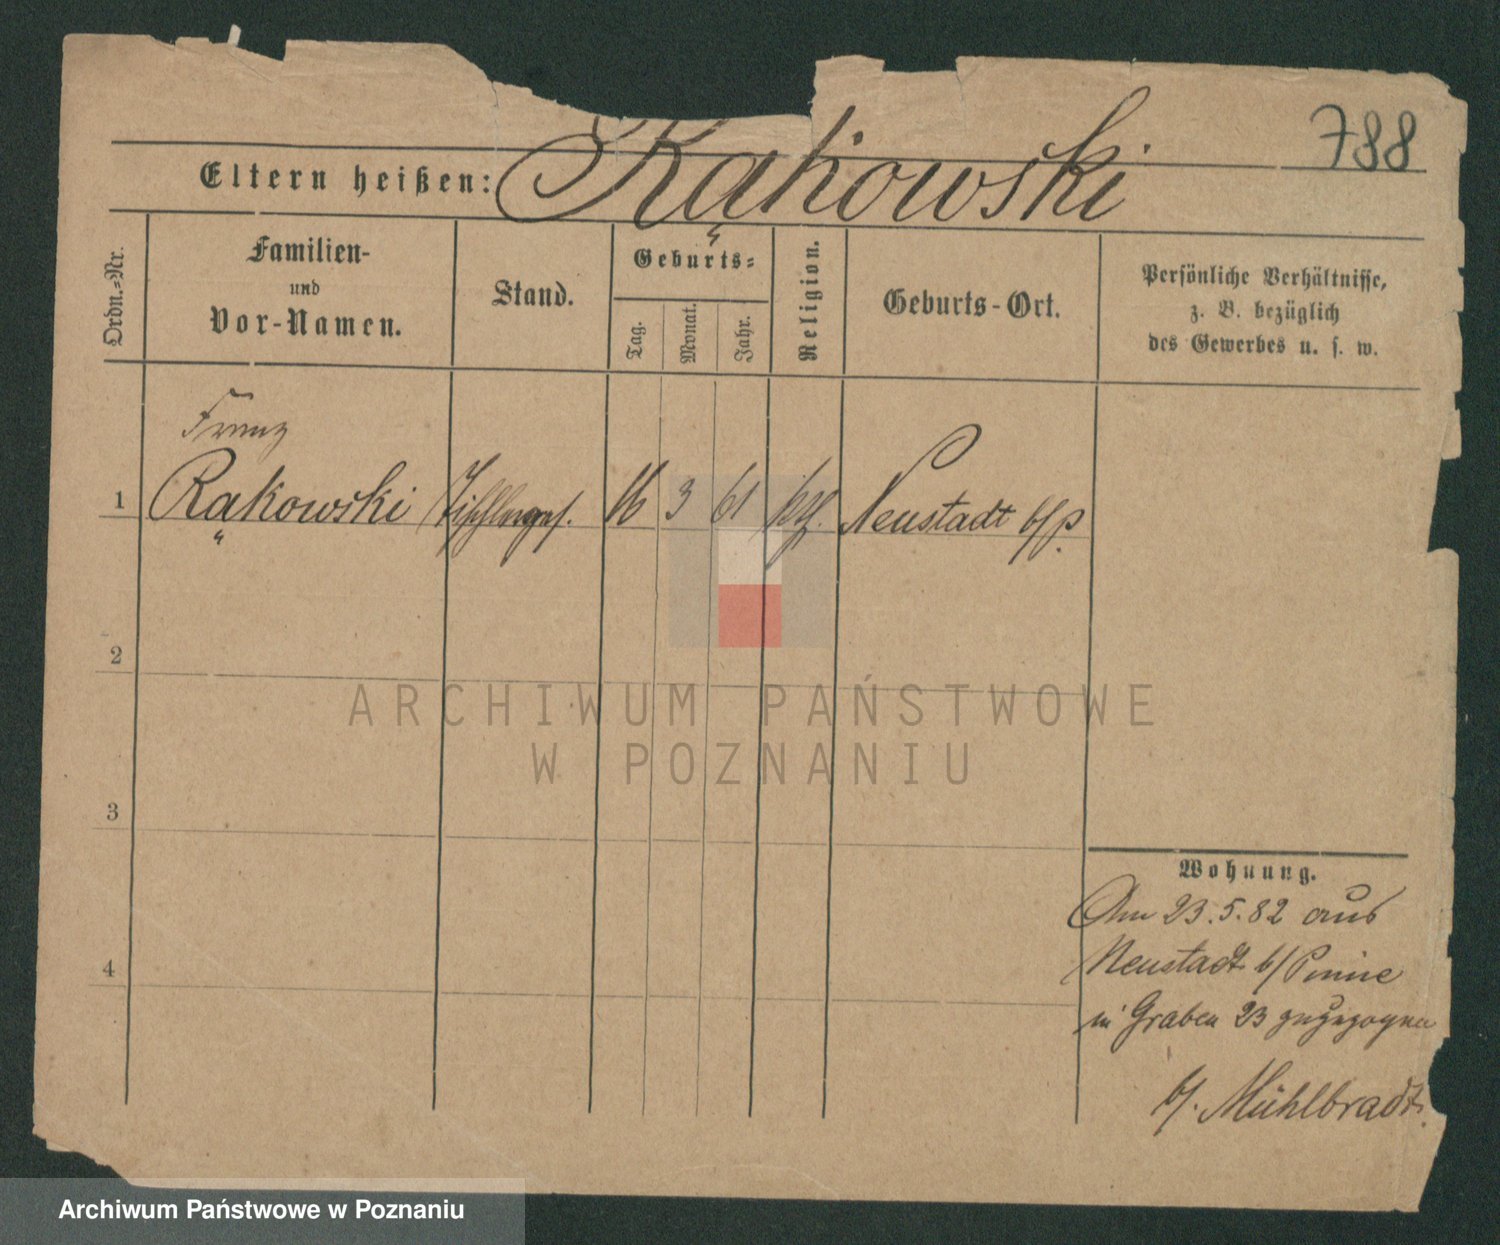 788
Eltern heißen: Rąkowski
Ordn.-Nr.
Familien-
und
Vor-Namen.
Stand.
Geburts-
Tag.
Monat.
Jahr.
Religion.
Geburts-Ort.
Persönliche Verhältnisse,
z. B. bezüglich
des Gewerbes u. s. w.
Franz
1 Rąkowski Tischlerges. 16 3 61 kth. Neustadt b/P.
2
3
4
ARCHIWUM PAŃSTWOWE
W POZNANIU
Wohnung.
Am 23.5.82 aus
Neustadt b/Pinne
in Graben 23 zugezogen
b/. Mühlbradt.
Archiwum Państwowe w Poznaniu